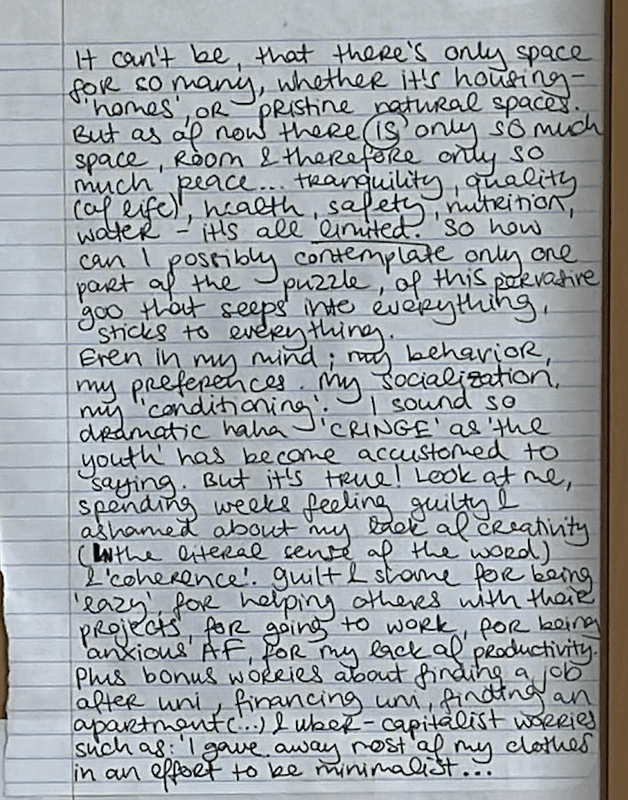 It can't be, that there's only space
for so many, whether it's housing -
'homes', OR pristine natural spaces.
But as of now there IS only so much
space, Room & therefore only so
much peace... tranquility, quality
(of life), health, safety, nutrition,
water - it's all limited. So how
can I possibly contemplate only one
part of the puzzle, of this pervasive
goo that seeps into everything,
sticks to everything.
Even in my mind; my behavior,
my preferences. My socialization,
my 'conditioning'. I sound so
dramatic haha 'CRINGE' as 'the
youth' has become accustomed to
saying. But it's true! Look at me,
spending weeks feeling guilty &
ashamed about my lack of creativity
(IN the literal sense of the word)
& 'coherence'. Guilt & shame for being
'lazy', for helping others with their
projects, for going to work, for being
anxious AF, for my lack of productivity.
Plus bonus worries about finding a job
after uni, financing uni, finding an
apartment (...) & uber-capitalist worries
such as: 'I gave away most of my clothes
in an effort to be minimalist...